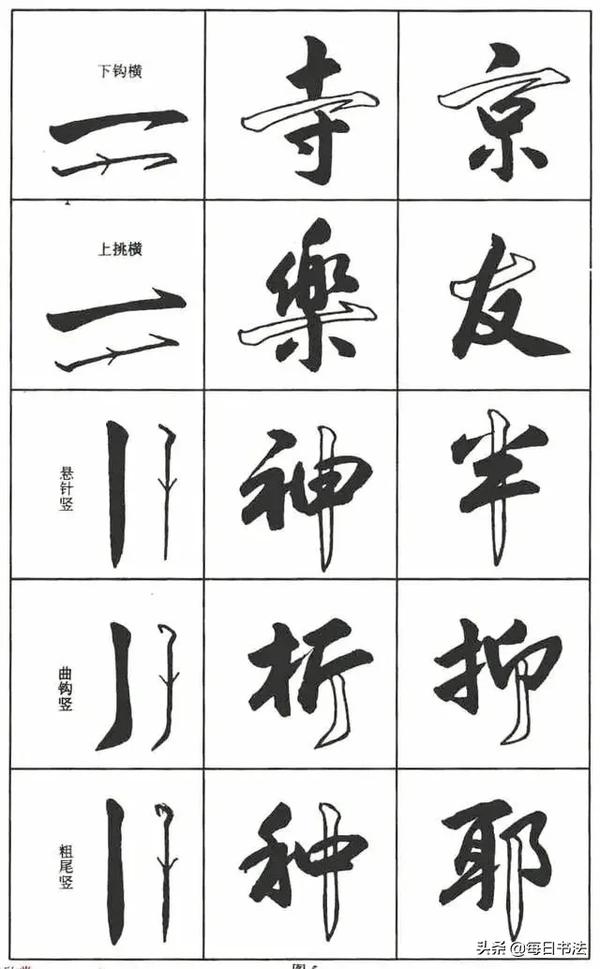 下钩横
寺 京
上挑横
樂 友
悬针竖
神 半
曲钩竖
析 抑
粗尾竖
种 耶
头条 @每日书法